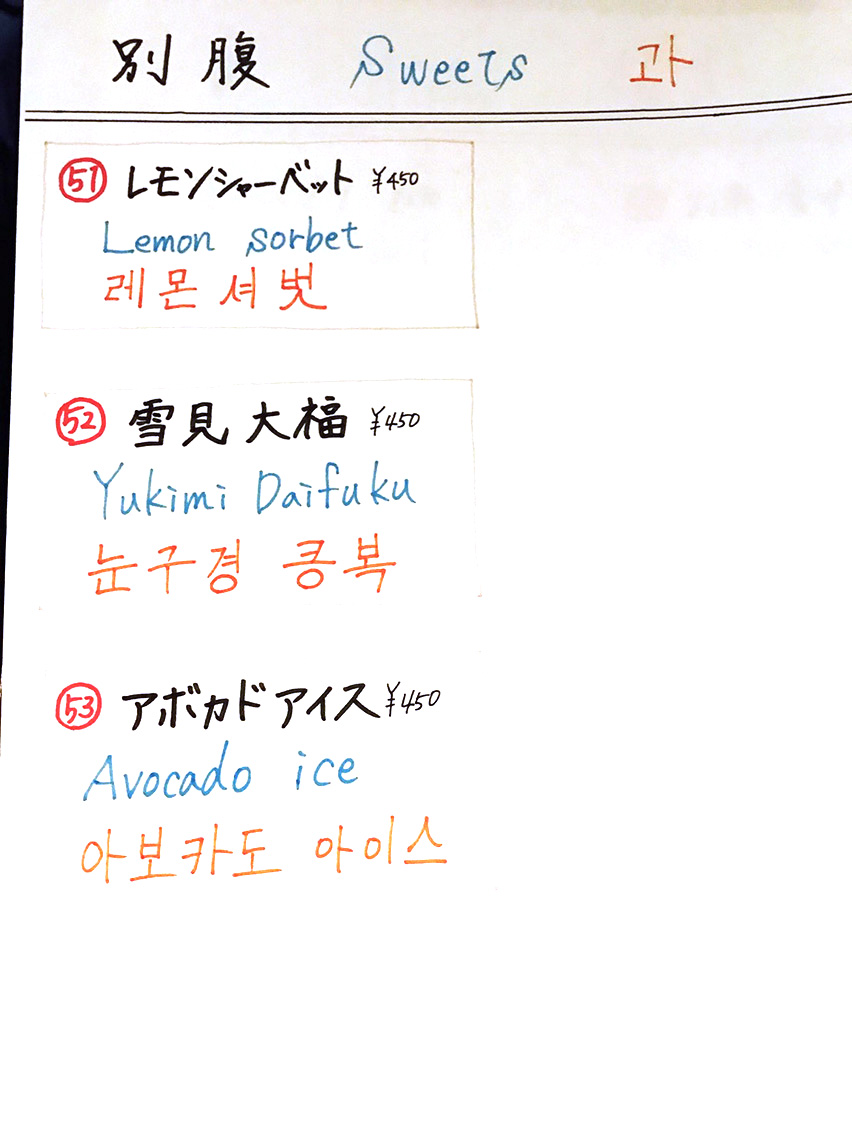 別腹 Sweets 과
51 レモンシャーベット ¥450
Lemon sorbet
레몬 셔벗
52 雪見大福 ¥450
Yukimi Daifuku
눈구경 콩복
53 アボカドアイス ¥450
Avocado ice
아보카도 아이스